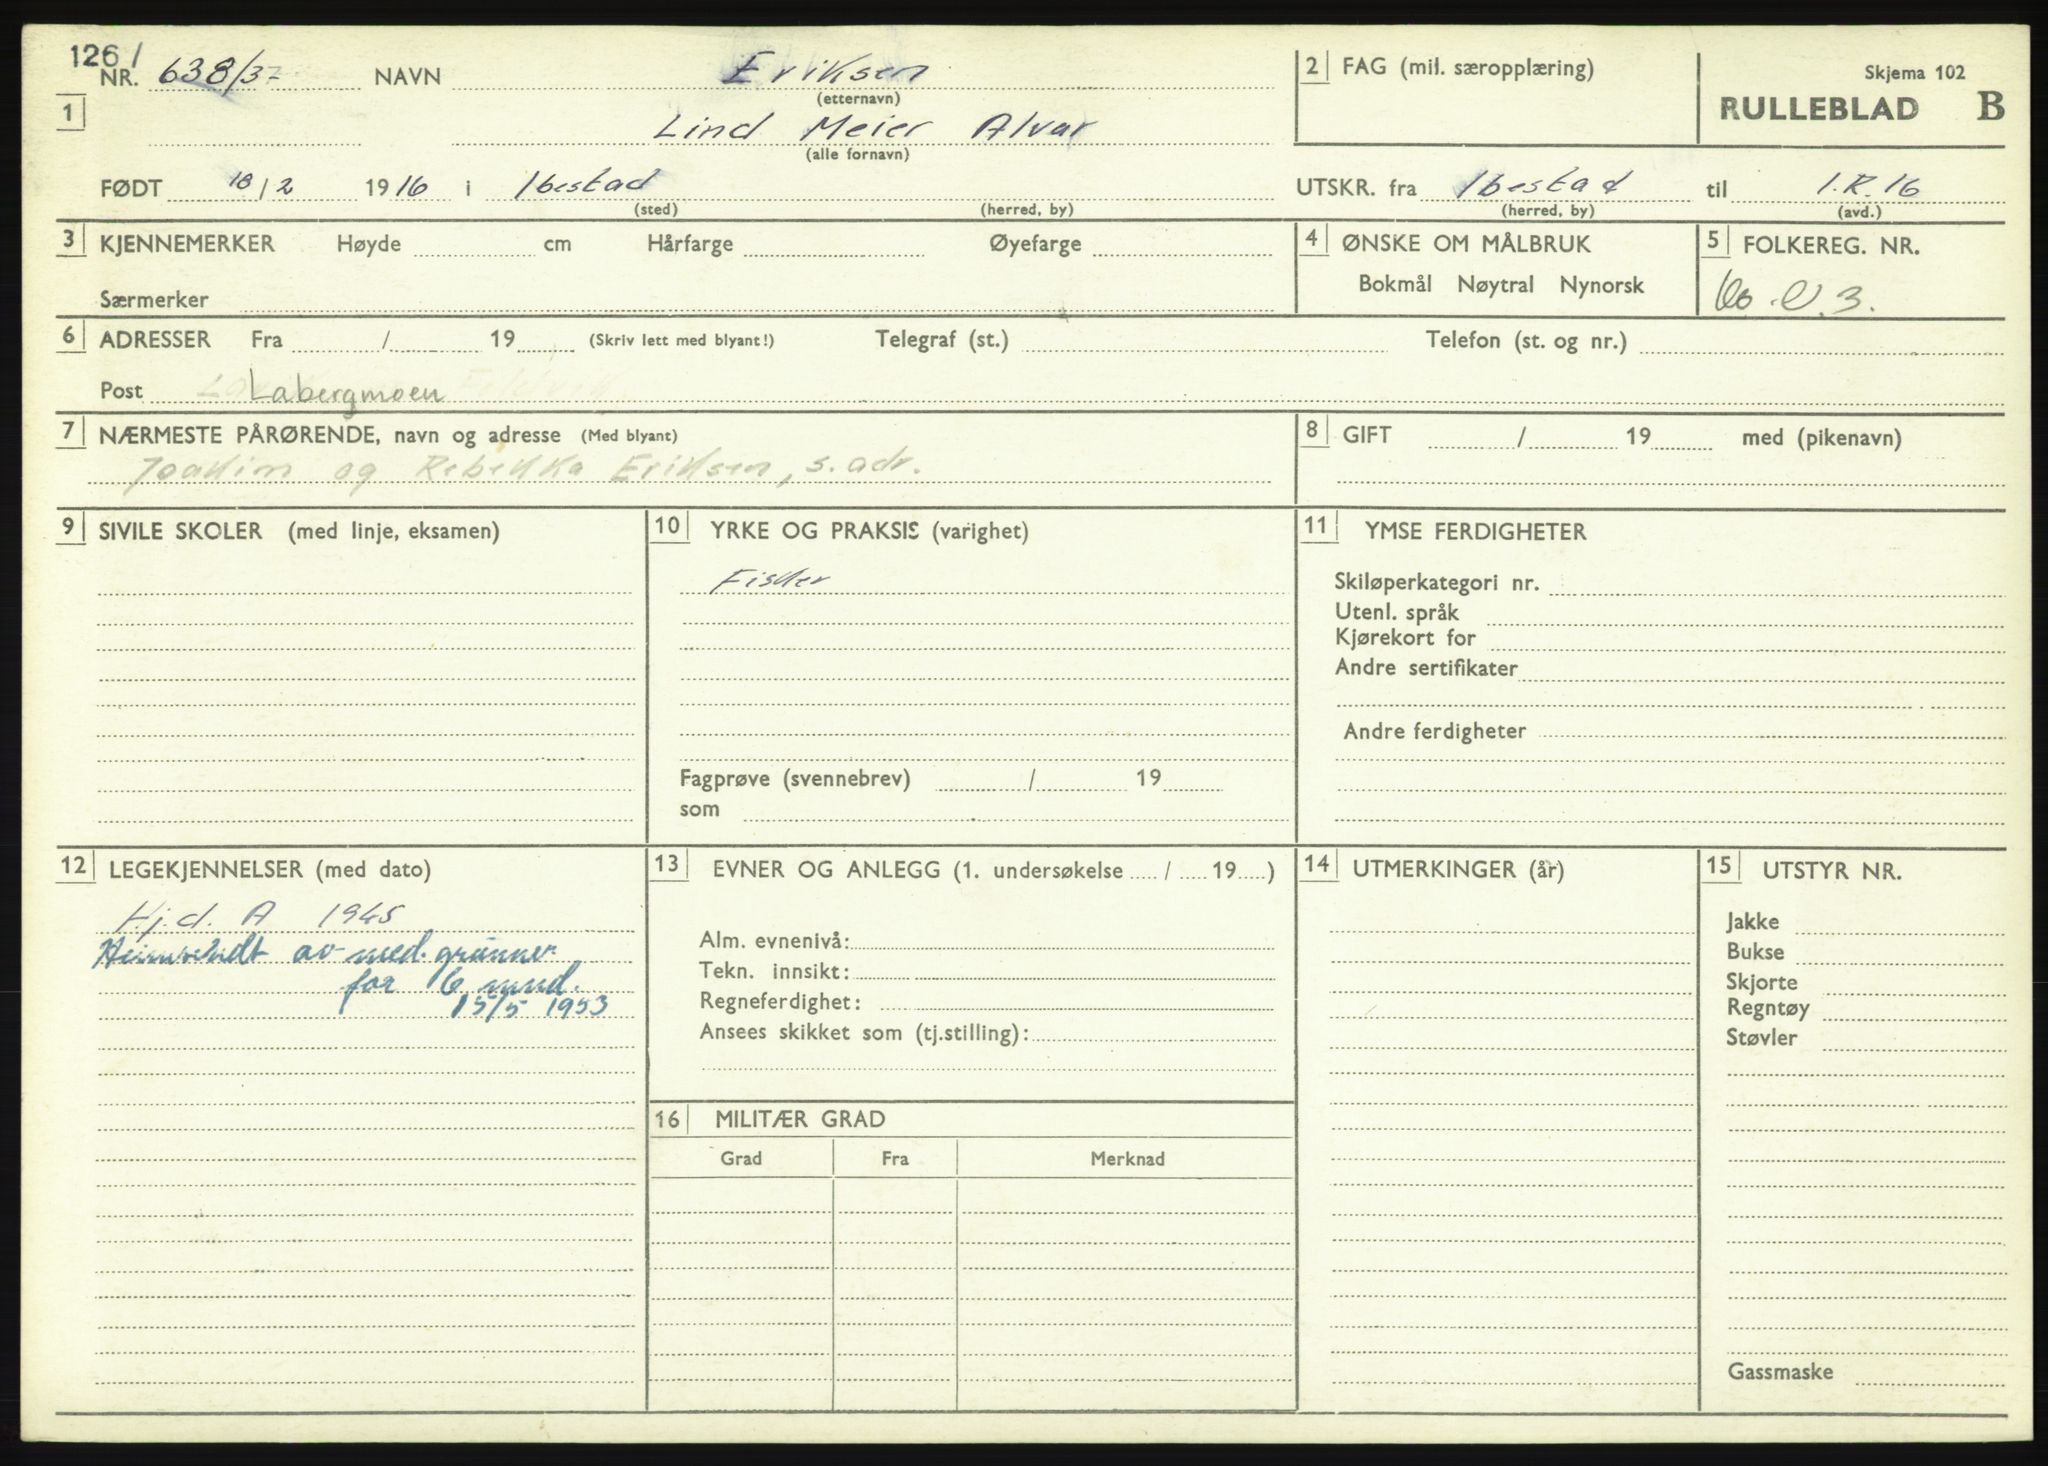 126/
NR. 638/37 NAVN Eriksen
(etternavn)
1 Lind Meier Alvar
(alle fornavn)
FØDT 18/2 1916 i Ibestad
(sted) (herred, by)
2 FAG (mil. særopplæring)
Skjema 102
RULLEBLAD B
UTSKR. fra Ibestad til I.R. 16
(herred, by) (avd.)
3 KJENNEMERKER Høyde cm Hårfarge Øyefarge
Særmerker
4 ØNSKE OM MÅLBRUK
Bokmål Nøytral Nynorsk
5 FOLKEREG. NR.
3.
6 ADRESSER Fra / 19 (Skriv lett med blyant!) Telegraf (st.) Telefon (st. og nr.)
Post Labergmoen
7 NÆRMESTE PÅRØRENDE, navn og adresse (Med blyant)
Joakim og Rebekka Eriksen, s. adr.
8 GIFT / 19 med (pikenavn)
9 SIVILE SKOLER (med linje, eksamen)
10 YRKE OG PRAKSIS (varighet)
Fisker
Fagprøve (svennebrev) / 19
som
11 YMSE FERDIGHETER
Skiløperkategori nr.
Utenl. språk
Kjørekort for
Andre sertifikater
Andre ferdigheter
12 LEGEKJENNELSER (med dato)
Hj.d. A 1945
Heimsendt av med. grunner
for 6 mnd.
15/5 1953
13 EVNER OG ANLEGG (1. undersøkelse / 19 )
Alm. evnenivå:
Tekn. innsikt:
Regneferdighet:
Ansees skikket som (tj.stilling):
16 MILITÆR GRAD
Grad Fra Merknad
14 UTMERKINGER (år)
15 UTSTYR NR.
Jakke
Bukse
Skjorte
Regntøy
Støvler
Gassmaske